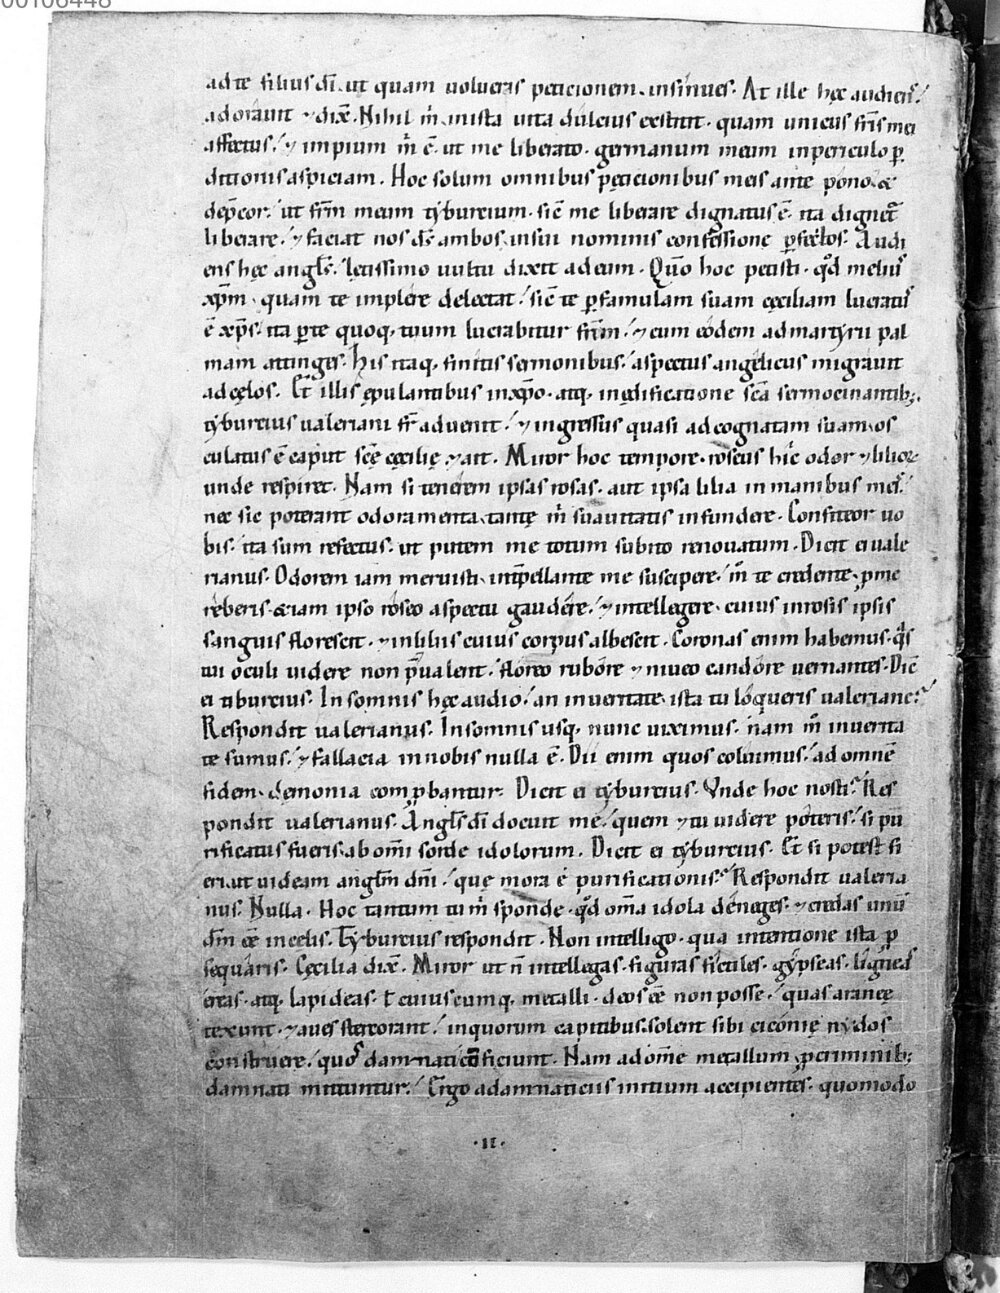 00106448
ad te filius dī. ut quam uolueris peticionem. insinues. At ille hęc audiens.
adorauit ⁊ dix̄. Nihil m̄ in ista uita dulcius exstitit. quam unicus fr̄is mei
affectus. ⁊ impium m̄ ē. ut me liberato. germanum meum in periculo ꝑ
ditionis aspiciam. Hoc solum omnibus pęticionibus meis ante pono. &
dep̄cor. ut fr̄m meum tyburcium. sic̄ me liberare dignatus ē. ita dignet̄
liberare. ⁊ faciat nos d̄s ambos. in sui nominis confessione ꝑfectos. Audi
ens hęc angl̄s. lętissimo uultu dixit ad eum. Qūo hoc petisti. qd̄ melius
xp̄m. quam te implere delectat. sic̄ te ꝑ famulam suam cęciliam lucratus
ē xp̄s. ita ꝑ te quoq. tuum lucrabitur fr̄m. ⁊ cum eodem ad martyrii pal
mam attinges. His itaq. finitis sermonibus. aspectus angelicus migrauit
ad cęlos. Et illis ępulantibus in xp̄o. atq. in ędificatione sc̄a sermocinantib;.
tyburcius ualeriani fr̄ aduenit. ⁊ ingressus quasi ad cognatam suam. os
culatus ē caput sc̄ę cęcilię ⁊ ait. Miror hoc tempore. roseus hic odor ⁊ lilior
unde respiret. Nam si tenerem ipsas rosas. aut ipsa lilia in manibus meis.
nec sic poterant odoramenta. tantę m̄ suauitatis infundere. Confiteor uo
bis. ita sum refectus. ut putem me totum subito renouatum. Dicit ei uale
rianus. Odorem iam meruisti. int̄pellante me suscipere. m̄ te credente. ꝓme
reberis. & iam ipso roseo aspectu gaudere. ⁊ intellegere. cuius in rosis ipsis
sanguis florescit. ⁊ in liliis cuius corpus albescit. Coronas enim habemus. q̄s
tui oculi uidere non p̄ualent. floreo rubore ⁊ niueo candore uernantes. Dic̄
ei tiburcius. In somnis hęc audio. an in ueritate ista tu loqueris ualeriane.
Respondit ualerianus. In somnis usq. nunc uiximus. nam m̄ in uerita
te sumus. ⁊ fallacia in nobis nulla ē. Dii enim quos coluimus. ad omnē
fidem. dęmonia comꝓbantur. Dicit ei tyburcius. Vnde hoc nosti. Res
pondit ualerianus. Angl̄s dī docuit me. quem ⁊ tu uidere poteris. si pu
rificatus fueris. ab omī sorde idolorum. Dicit ei tyburcius. Et si potest fi
eri. ut uideam angl̄m dn̄i. quę mora ē purificationis. Respondit ualeria
nus. Nulla. Hoc tantum tu m̄ sponde. qd̄ om̄a idola deneges. ⁊ credas unū
d̄m ēē in cęlis. Tyburcius respondit. Non intelligo. qua intentione ista ꝓ
sequaris. Cęcilia dix̄. Miror ut n̄ intellegas. figuras fictiles. gypseas. ligneas
ęreas. atq. lapideas. ł cuiuscumq. metalli. deos ēē non posse. quas araneę
texunt. ⁊ aues stercorant. in quorum capitibus. solent sibi ciconię nydos
construere. quos damnaticii ficiunt. Nam ad om̄e metallum ꝓ criminib;
damnati mittuntur. Ergo a damnaticiis initium accipientes. quomodo
.II.